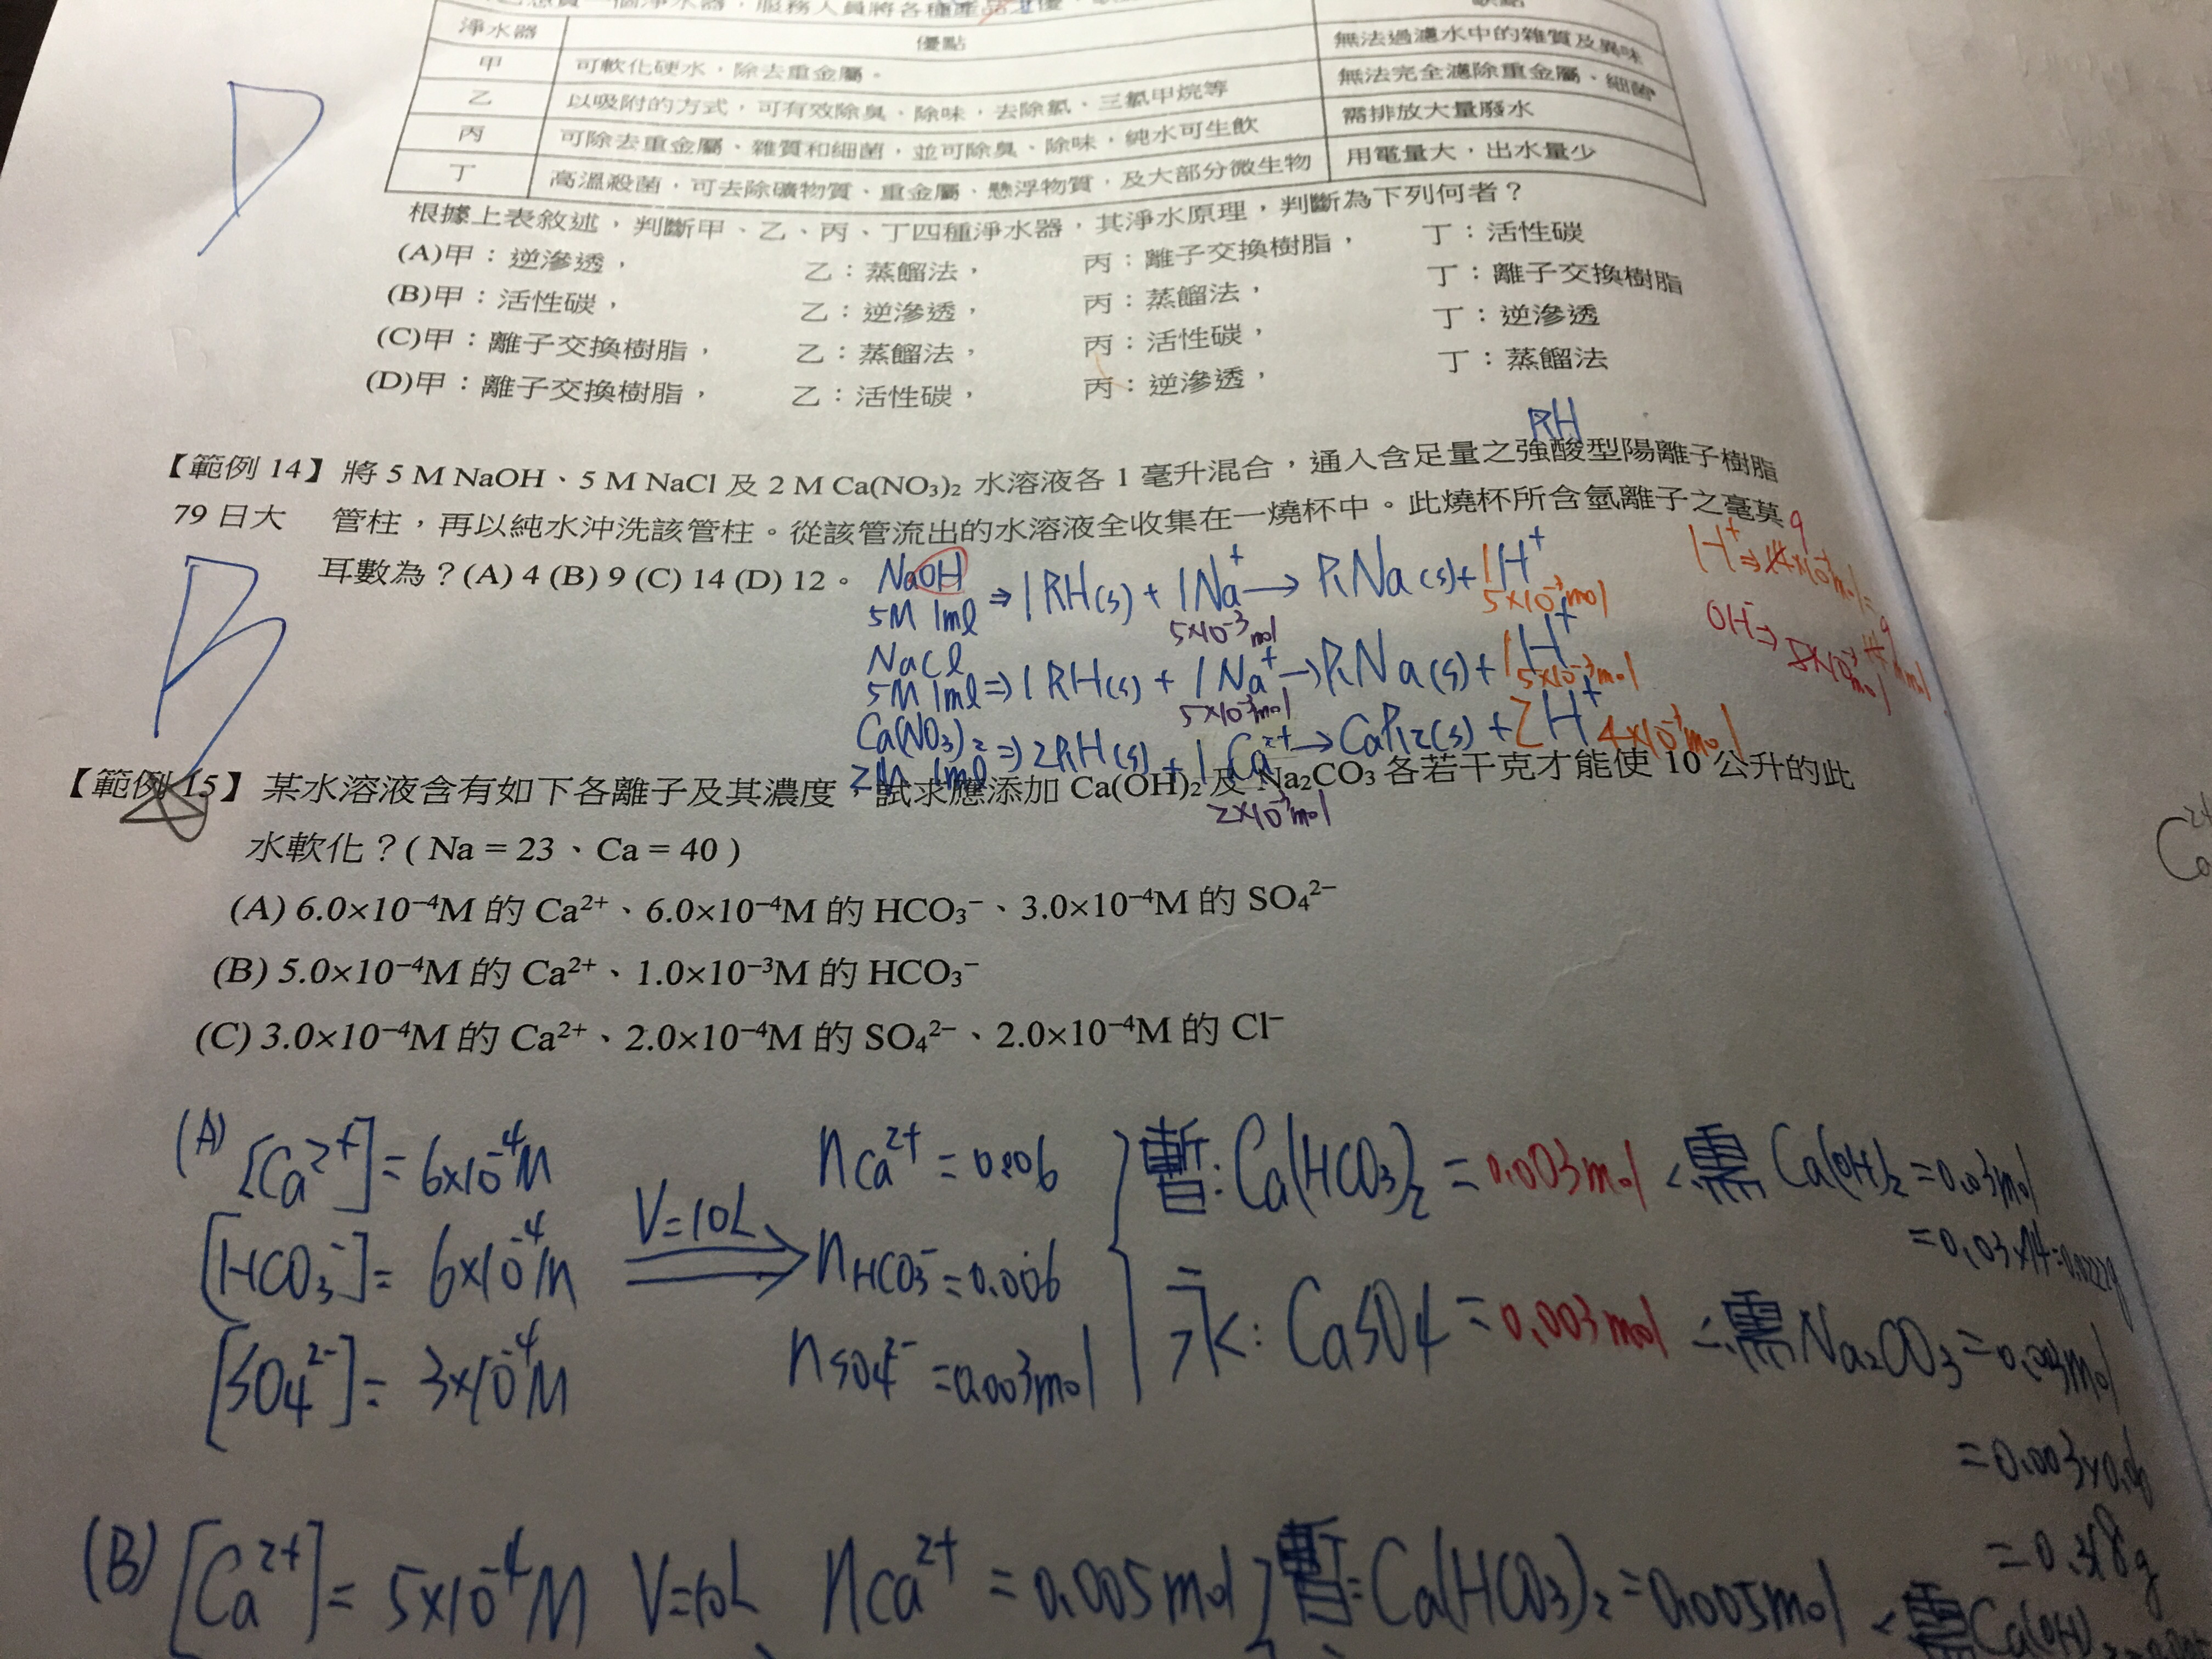 想買一個淨水器，服務人員將各種產品之優
淨水器 優點 缺點
甲 可軟化硬水，除去重金屬。 無法過濾水中的雜質及異味
乙 以吸附的方式，可有效除臭、除味，去除氯、三氯甲烷等 無法完全濾除重金屬、細菌
丙 可除去重金屬、雜質和細菌，並可除臭、除味，純水可生飲 需排放大量廢水
丁 高溫殺菌，可去除礦物質、重金屬、懸浮物質，及大部分微生物 用電量大，出水量少
D
根據上表敘述，判斷甲、乙、丙、丁四種淨水器，其淨水原理，判斷為下列何者？
(A)甲：逆滲透， 乙：蒸餾法， 丙：離子交換樹脂， 丁：活性碳
(B)甲：活性碳， 乙：逆滲透， 丙：蒸餾法， 丁：離子交換樹脂
(C)甲：離子交換樹脂， 乙：蒸餾法， 丙：活性碳， 丁：逆滲透
(D)甲：離子交換樹脂， 乙：活性碳， 丙：逆滲透， 丁：蒸餾法
RH
【範例 14】將 5 M NaOH、5 M NaCl 及 2 M Ca(NO₃)₂ 水溶液各 1 毫升混合，通入含足量之強酸型陽離子樹脂
79 日大 管柱，再以純水沖洗該管柱。從該管流出的水溶液全收集在一燒杯中。此燒杯所含氫離子之毫莫
耳數為？(A) 4 (B) 9 (C) 14 (D) 12。
B
NaOH ⇒ 1RH(s) + 1Na⁺ → RNa(s) + 1H⁺
5M 1ml 5×10⁻³mol 5×10⁻³mol
NaCl
5M 1ml ⇒ 1RH(s) + 1Na⁺ → RNa(s) + 1H⁺
5×10⁻³mol 5×10⁻³mol
Ca(NO₃)₂ ⇒ 2RH(s) + 1Ca²⁺ → CaR₂(s) + 2H⁺ 4×10⁻³mol
2M 1ml 2×10⁻³mol
H⁺ ⇒ 14×10⁻³mol
OH⁻ ⇒ 5×10⁻³mol
9
【範例 15】某水溶液含有如下各離子及其濃度，試求應添加 Ca(OH)₂ 及 Na₂CO₃ 各若干克才能使 10 公升的此
水軟化？( Na = 23、Ca = 40 )
(A) 6.0×10⁻⁴M 的 Ca²⁺、6.0×10⁻⁴M 的 HCO₃⁻、3.0×10⁻⁴M 的 SO₄²⁻
(B) 5.0×10⁻⁴M 的 Ca²⁺、1.0×10⁻³M 的 HCO₃⁻
(C) 3.0×10⁻⁴M 的 Ca²⁺、2.0×10⁻⁴M 的 SO₄²⁻、2.0×10⁻⁴M 的 Cl⁻
Ca²⁺
(A) [Ca²⁺] = 6×10⁻⁴M nCa²⁺ = 0.006 暫: Ca(HCO₃)₂ = 0.003mol ∴需 Ca(OH)₂ = 0.03mol
= 0.03×74 = 0.0222g
[HCO₃⁻] = 6×10⁻⁴M V=10L nHCO₃⁻ = 0.006
[SO₄²⁻] = 3×10⁻⁴M nSO₄²⁻ = 0.003mol 永: CaSO4 = 0.003mol ∴需 Na₂CO₃ = 0.003mol
= 0.003×0.06
= 0.318g
(B) [Ca²⁺] = 5×10⁻⁴M V=10L nCa²⁺ = 0.005mol 暫: Ca(HCO₃)₂ = 0.005mol ∴需 Ca(OH)₂